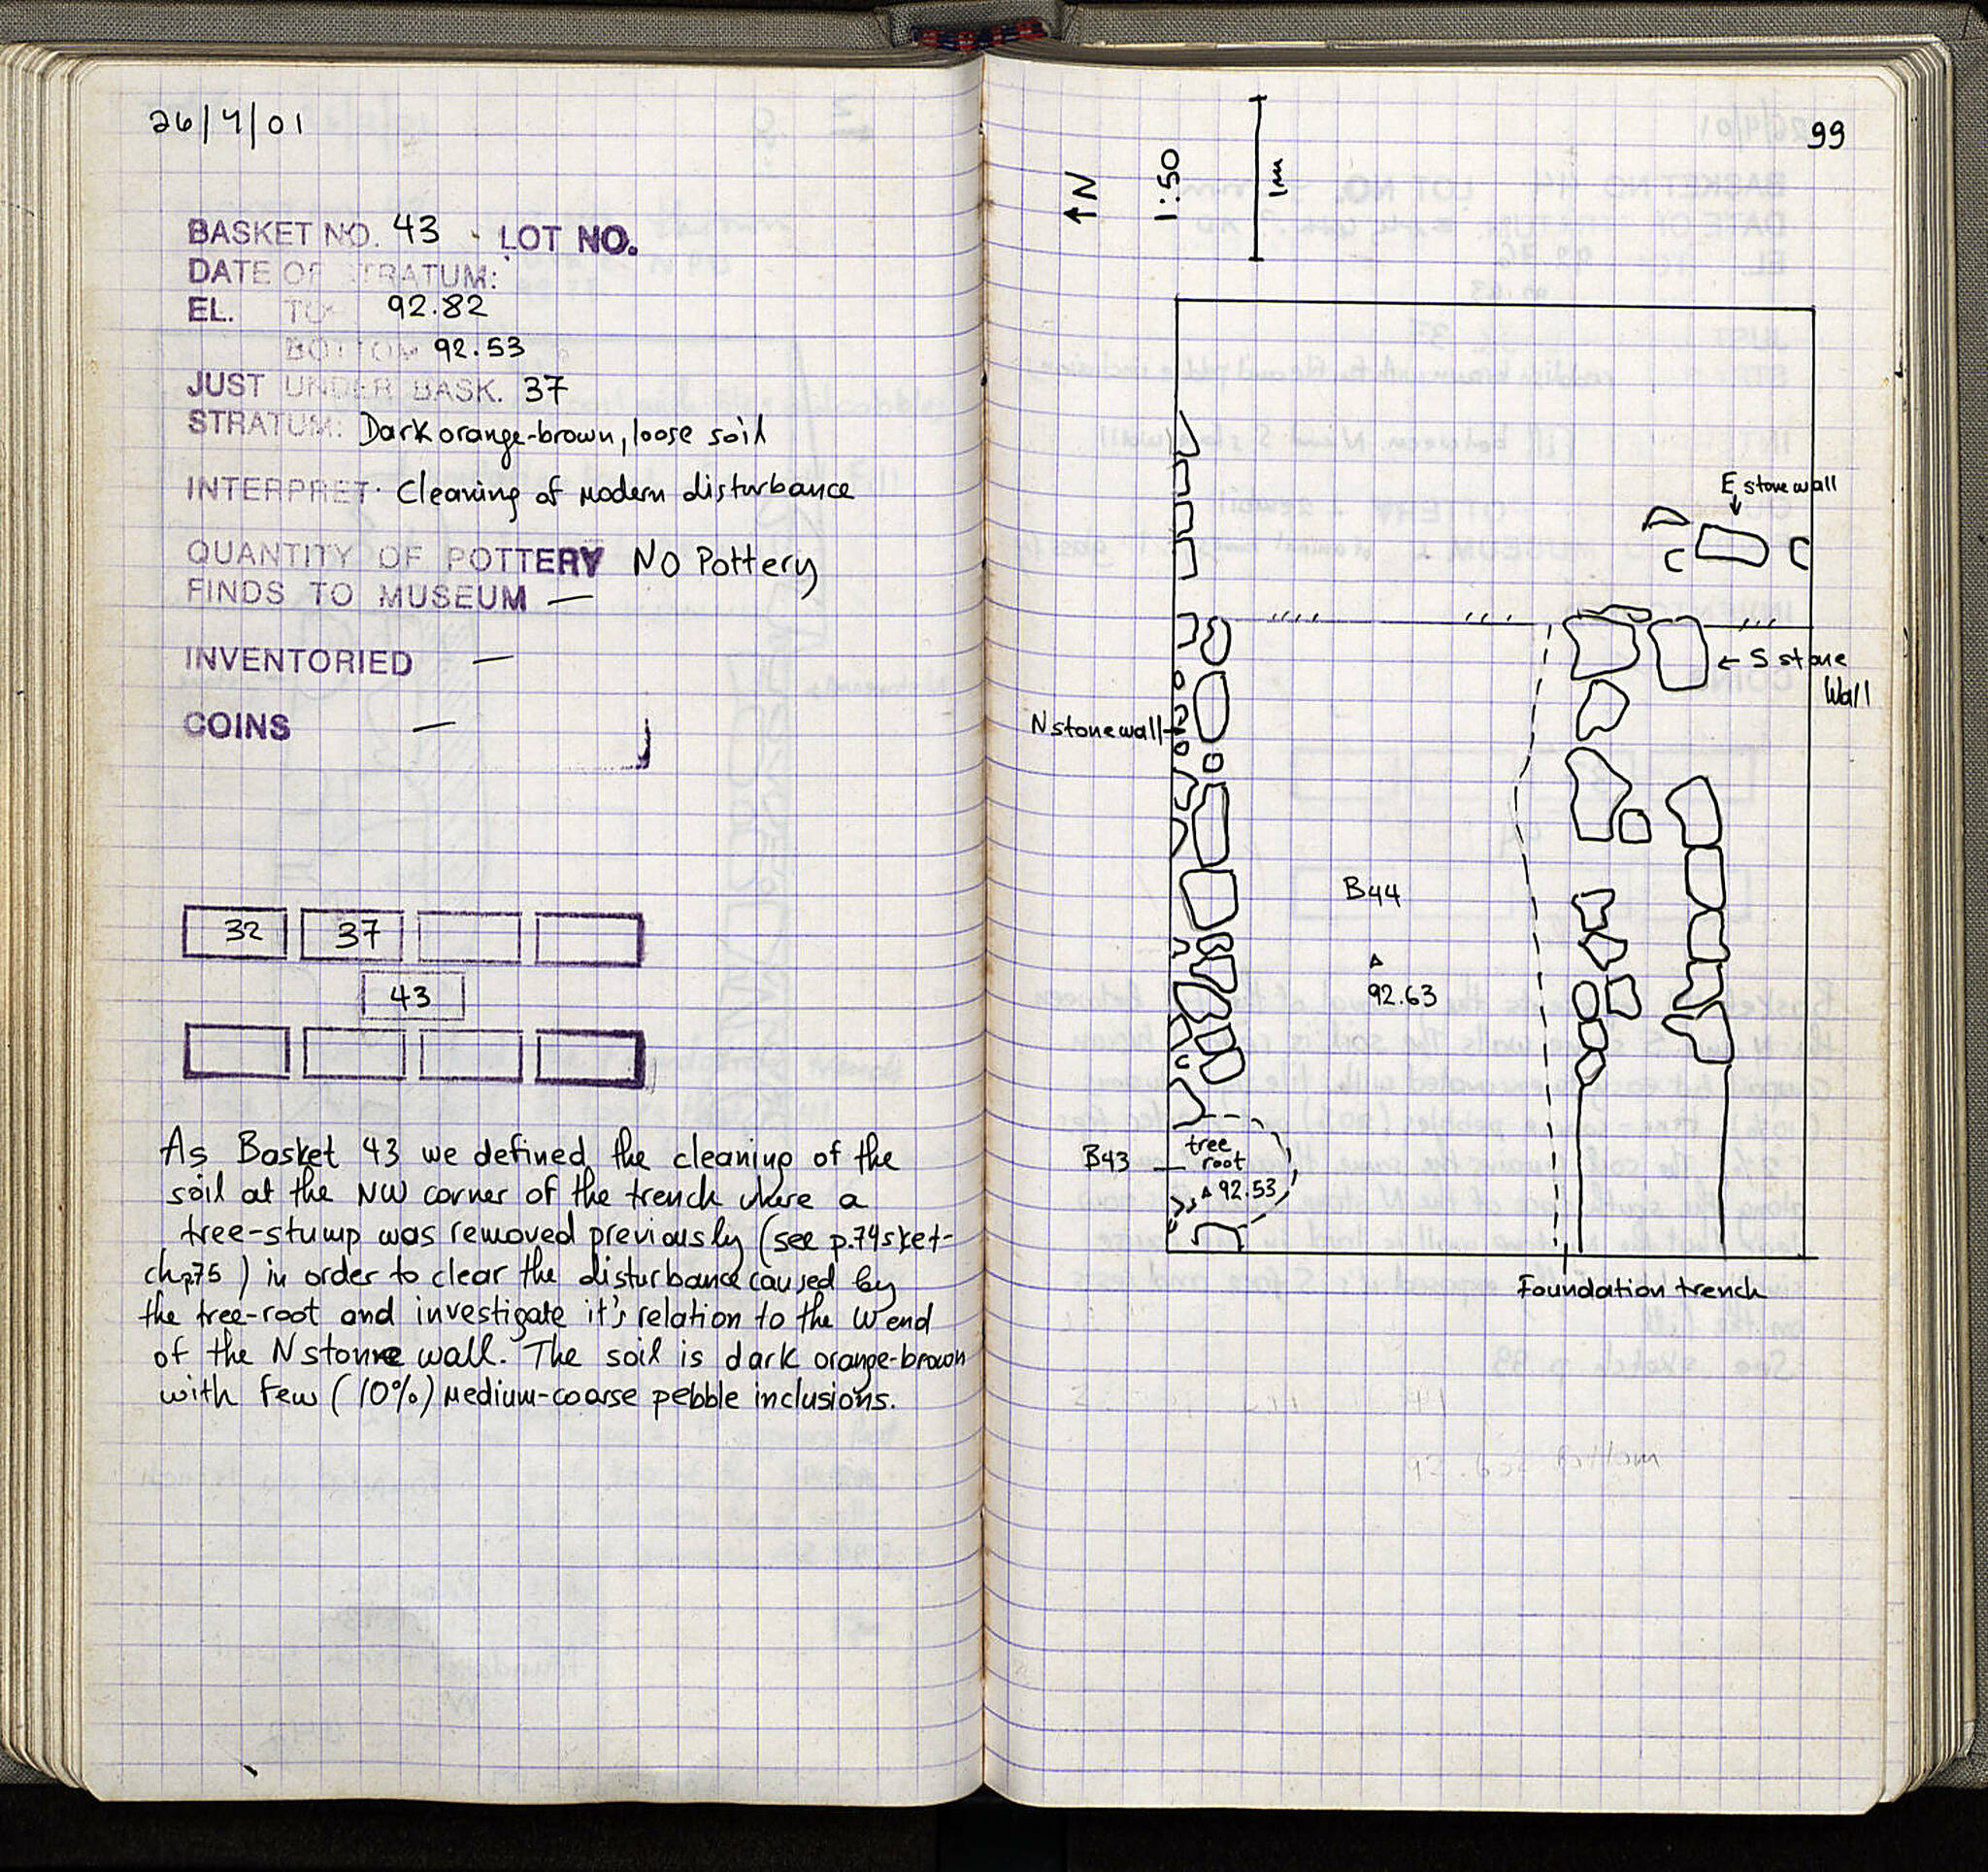 26/4/01
BASKET NO. 43 - LOT NO.
DATE OF STRATUM:
EL. TOP 92.82
BOTTOM 92.53
JUST UNDER BASK. 37
STRATUM: Dark orange-brown, loose soil
INTERPRET. Cleaning of modern disturbance
QUANTITY OF POTTERY NO Pottery
FINDS TO MUSEUM —
INVENTORIED —
COINS —
32 37
43
As Basket 43 we defined the cleaning of the
soil at the NW corner of the trench where a
tree-stump was removed previously (see p.74 sket-
ch p75) in order to clear the disturbance caused by
the tree-root and investigate it's relation to the W end
of the N stone wall. The soil is dark orange-brown
with few (10%) medium-coarse pebble inclusions.
99
N
1:50
1m
E stone wall
S stone
Wall
N stone wall
B44
92.63
B43
tree
root
92.53
Foundation trench
Bottom